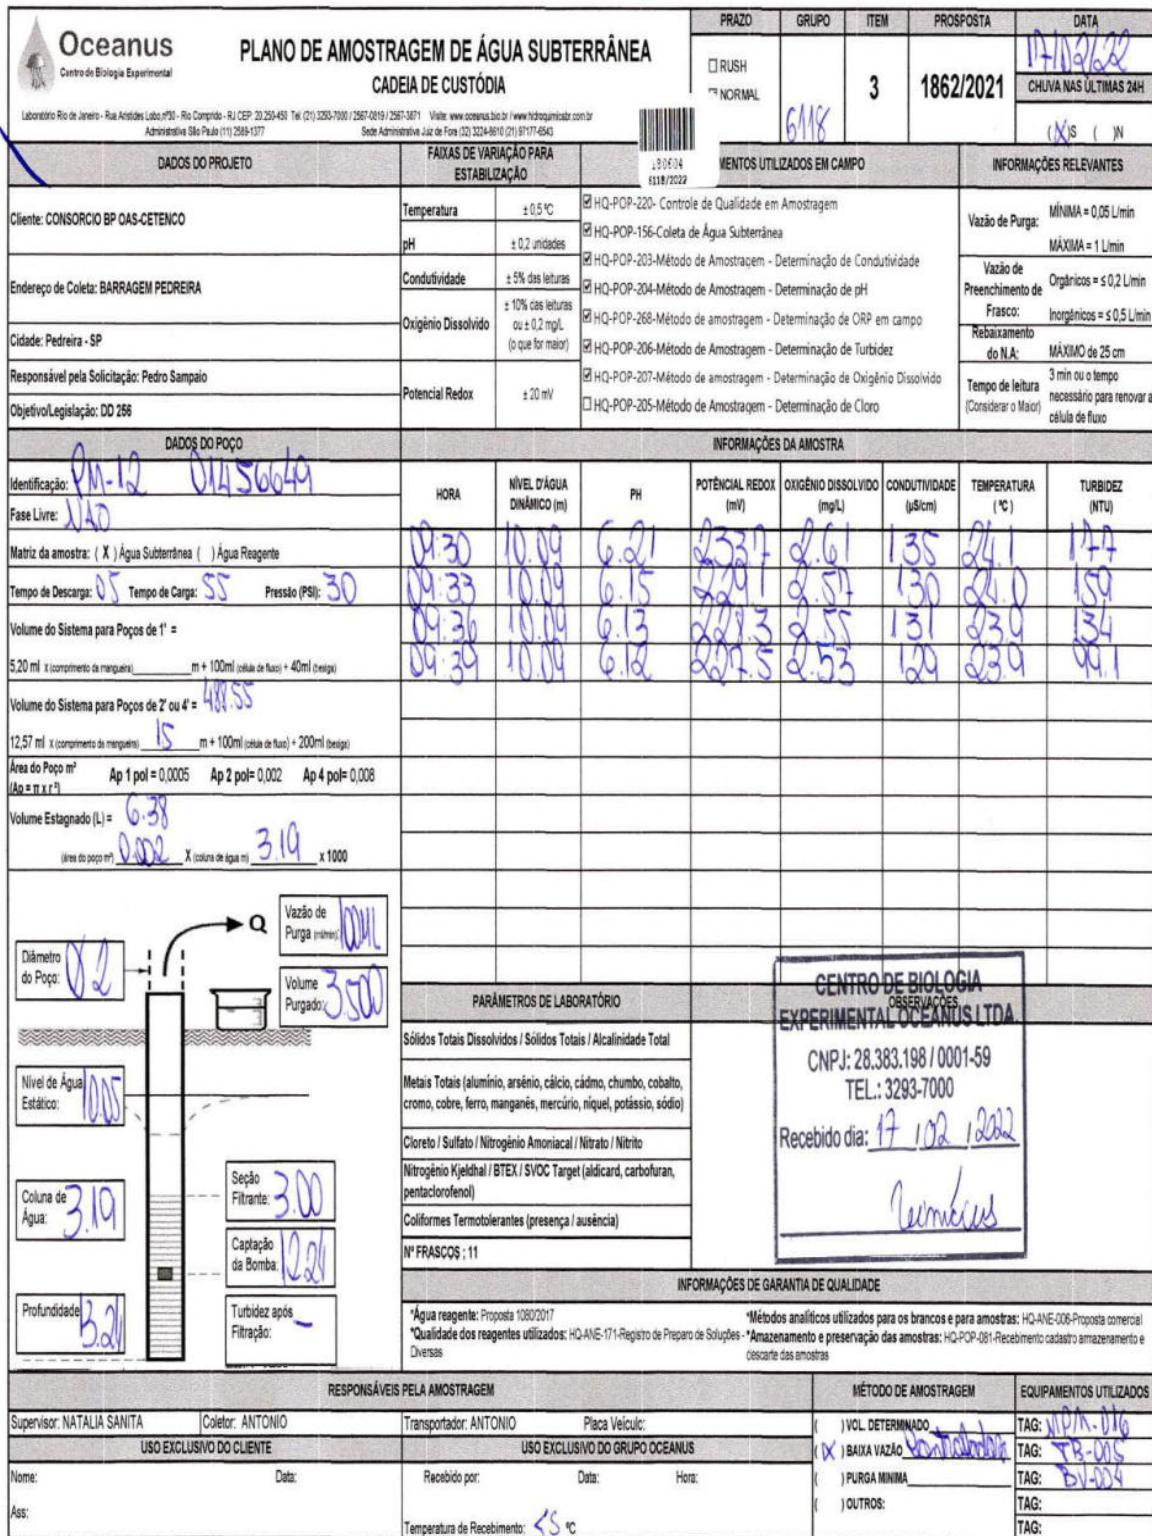 Oceanus
Centro de Biologia Experimental
PLANO DE AMOSTRAGEM DE ÁGUA SUBTERRÂNEA
CADEIA DE CUSTÓDIA
Laboratório Rio de Janeiro - Rua Aristides Lobo,nº30 - Rio Comprido - RJ CEP: 20.250-450 Tel: (21) 3293-7000 / 2567-0819 / 2567-3871 Visite: www.oceanus.bio.br / www.hidroquimicabr.com.br
Administrativa São Paulo (11) 2589-1377 Sede Administrativa Juiz de Fora (32) 3224-8610 (21) 97177-6543
PRAZO GRUPO ITEM PROSPOSTA DATA
RUSH
NORMAL
6118
3
1862/2021
17/02/22
CHUVA NAS ÚLTIMAS 24H
(X)S ( )N
180604
6118/2022
DADOS DO PROJETO
Cliente: CONSORCIO BP OAS-CETENCO
Endereço de Coleta: BARRAGEM PEDREIRA
Cidade: Pedreira - SP
Responsável pela Solicitação: Pedro Sampaio
Objetivo/Legislação: DD 256
FAIXAS DE VARIAÇÃO PARA ESTABILIZAÇÃO
Temperatura ± 0,5 ºC
pH ± 0,2 unidades
Condutividade ± 5% das leituras
Oxigênio Dissolvido ± 10% das leituras ou ± 0,2 mg/L (o que for maior)
Potencial Redox ± 20 mV
MENTOS UTILIZADOS EM CAMPO
HQ-POP-220- Controle de Qualidade em Amostragem
HQ-POP-156-Coleta de Água Subterrânea
HQ-POP-203-Método de Amostragem - Determinação de Condutividade
HQ-POP-204-Método de Amostragem - Determinação de pH
HQ-POP-268-Método de amostragem - Determinação de ORP em campo
HQ-POP-206-Método de Amostragem - Determinação de Turbidez
HQ-POP-207-Método de amostragem - Determinação de Oxigênio Dissolvido
HQ-POP-205-Método de Amostragem - Determinação de Cloro
INFORMAÇÕES RELEVANTES
Vazão de Purga: MÍNIMA = 0,05 L/min
MÁXIMA = 1 L/min
Vazão de Preenchimento de Frasco: Orgânicos = ≤ 0,2 L/min
Inorgânicos = ≤ 0,5 L/min
Rebaixamento do N.A: MÁXIMO de 25 cm
Tempo de leitura (Considerar o Maior) 3 min ou o tempo necessário para renovar a célula de fluxo
DADOS DO POÇO
Identificação: PM-12 01456649
Fase Livre: NÃO
Matriz da amostra: ( X ) Água Subterrânea ( ) Água Reagente
Tempo de Descarga: 05 Tempo de Carga: 55 Pressão (PSI): 30
Volume do Sistema para Poços de 1" =
5,20 ml x (comprimento da mangueira) m + 100ml (célula de fluxo) + 40ml (bexiga)
Volume do Sistema para Poços de 2" ou 4" = 488.55
12,57 ml x (comprimento da mangueira) 15 m + 100ml (célula de fluxo) + 200ml (bexiga)
Área do Poço m² (Ap = π x r²) Ap 1 pol = 0,0005 Ap 2 pol= 0,002 Ap 4 pol= 0,008
Volume Estagnado (L) = 6.38
(área do poço m²) 0.002 X (coluna de água m) 3.19 x 1000
INFORMAÇÕES DA AMOSTRA
HORA NÍVEL D'ÁGUA DINÂMICO (m) PH POTÊNCIAL REDOX (mV) OXIGÊNIO DISSOLVIDO (mg/L) CONDUTIVIDADE (µS/cm) TEMPERATURA (ºC) TURBIDEZ (NTU)
09:30 10.09 6.21 233.7 2.61 135 24.1 177
09:33 10.09 6.15 229.1 2.57 130 24.0 159
09:36 10.09 6.13 228.3 2.55 131 23.9 134
09:39 10.09 6.12 227.5 2.53 129 23.9 99.1
Q
Vazão de Purga (ml/min): 100ML
Diâmetro do Poço: Ø 2
Volume Purgado: 3.500
Nível de Água Estático: 10.05
Coluna de Água: 3.19
Seção Filtrante: 3.00
Captação da Bomba: 12.24
Profundidade 13.24
Turbidez após Filtração: -
PARÂMETROS DE LABORATÓRIO
Sólidos Totais Dissolvidos / Sólidos Totais / Alcalinidade Total
Metais Totais (alumínio, arsênio, cálcio, cádmo, chumbo, cobalto, cromo, cobre, ferro, manganês, mercúrio, níquel, potássio, sódio)
Cloreto / Sulfato / Nitrogênio Amoniacal / Nitrato / Nitrito
Nitrogênio Kjeldhal / BTEX / SVOC Target (aldicard, carbofuran, pentaclorofenol)
Coliformes Termotolerantes (presença / ausência)
Nº FRASCOS : 11
OBSERVAÇÕES
CENTRO DE BIOLOGIA
EXPERIMENTAL OCEANUS LTDA.
CNPJ: 28.383.198 / 0001-59
TEL.: 3293-7000
Recebido dia: 17 / 02 / 2022
INFORMAÇÕES DE GARANTIA DE QUALIDADE
*Água reagente: Proposta 1080/2017
*Qualidade dos reagentes utilizados: HQ-ANE-171-Registro de Preparo de Soluções - Diversas
*Métodos analíticos utilizados para os brancos e para amostras: HQ-ANE-006-Proposta comercial
*Amazenamento e preservação das amostras: HQ-POP-081-Recebimento cadastro armazenamento e descarte das amostras
RESPONSÁVEIS PELA AMOSTRAGEM
Supervisor: NATALIA SANITA Coletor: ANTONIO Transportador: ANTONIO Placa Veículo:
USO EXCLUSIVO DO CLIENTE
Nome: Data:
Ass:
USO EXCLUSIVO DO GRUPO OCEANUS
Recebido por: Data: Hora:
Temperatura de Recebimento: <5 ºC
MÉTODO DE AMOSTRAGEM
( ) VOL. DETERMINADO
(X) BAIXA VAZÃO
( ) PURGA MINIMA
( ) OUTROS:
EQUIPAMENTOS UTILIZADOS
TAG: MPM-016
TAG: TB-005
TAG: BV-004
TAG:
TAG: